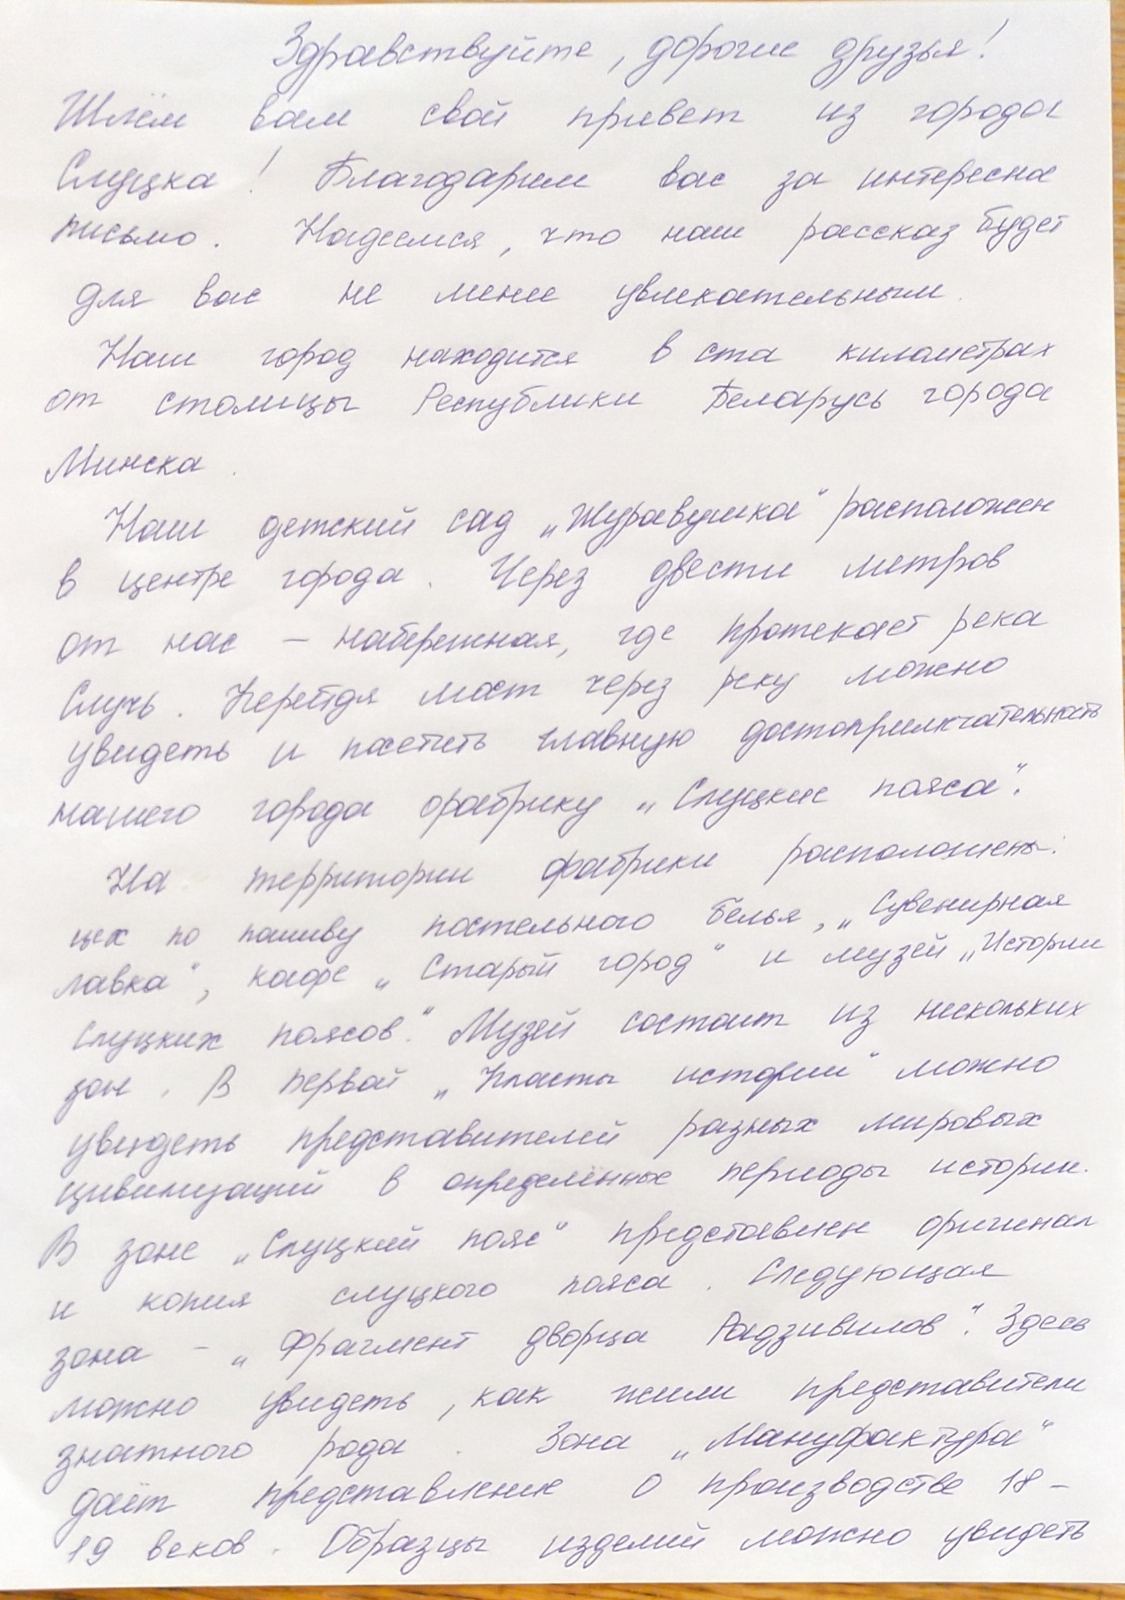 Здравствуйте, дорогие друзья!
Шлём вам свой привет из города
Слуцка! Благодарим вас за интересное
письмо. Надеемся, что наш рассказ будет
для вас не менее увлекательным.
Наш город находится в ста километрах
от столицы Республики Беларусь города
Минска.
Наш детский сад „Журавушка“ расположен
в центре города. Через двести метров
от нас – набережная, где протекает река
Случь. Перейдя мост через реку можно
увидеть и посетить главную достопримечательность
нашего города фабрику „Слуцкие пояса“.
На территории фабрики расположены:
цех по пошиву постельного белья, „Сувенирная
лавка“, кафе „Старый город“ и музей „Истории
слуцких поясов“. Музей состоит из нескольких
зон. В первой „Пласты истории“ можно
увидеть представителей разных мировых
цивилизаций в определённые периоды истории.
В зоне „Слуцкий пояс“ представлен оригинал
и копия слуцкого пояса. Следующая
зона – „Фрагмент дворца Радзивилов“. Здесь
можно увидеть, как жили представители
знатного рода. Зона „Мануфактура“
даёт представление о производстве 18–
19 веков. Образцы изделий можно увидеть